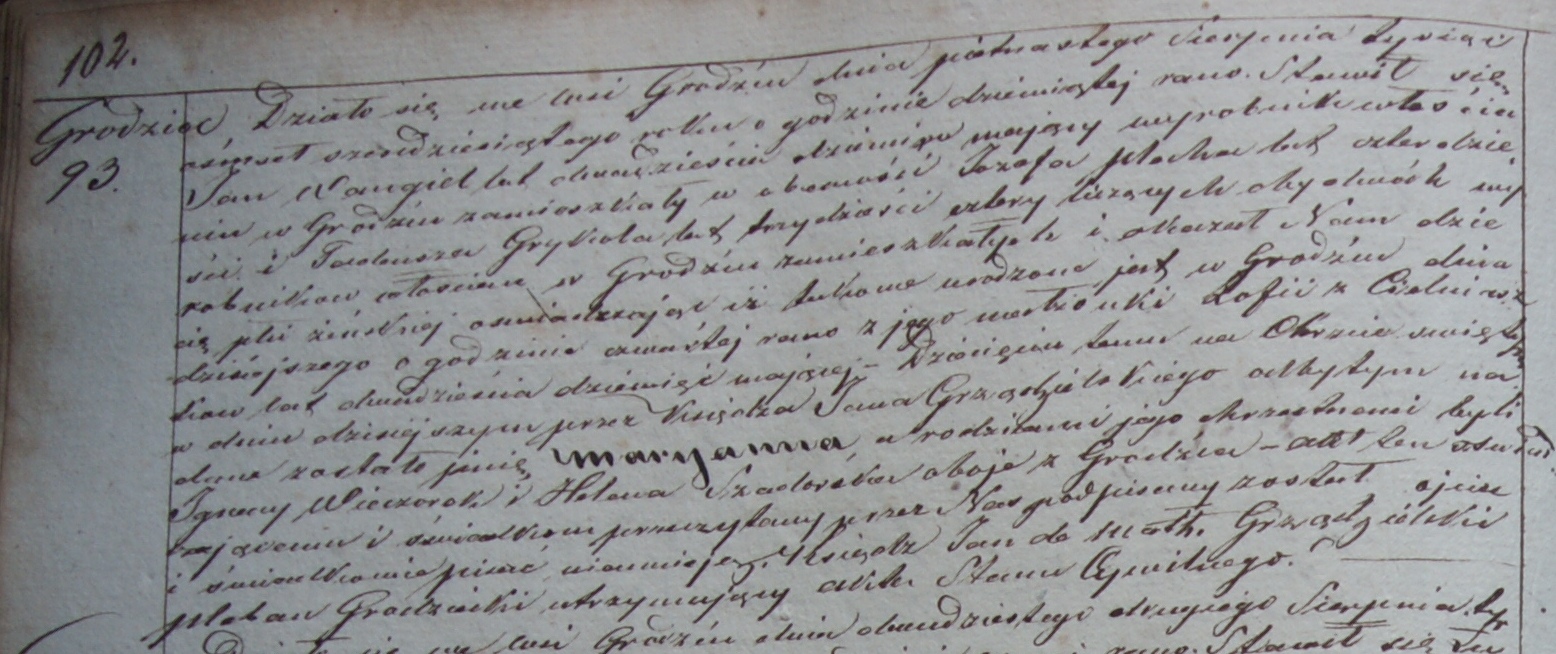 102.
Grodziec
93.
Działo się we wsi Grodźcu dnia piętnastego Sierpnia tysiąc
ośmset sześdziesiątego roku o godzinie dziewiątej rano. Stawił się
Jan lat dwadzieścia dziewięć mający wyrobnik włościa
nin w Grodźcu zamieszkały w obecności Józefa Płacha lat czterdzie
ści i Tadeusza Grykola lat trzydzieści cztery liczących obydwóch wy
robników włościan w Grodźcu zamieszkałych i okazał Nam dzie
cię płci żeńskiej oświadczając iż takowe urodzone jest w Grodźcu dnia
dzisiejszego o godzinie czwartej rano z jego małżonki Zofii z
ków lat dwadzieścia dziewięć mającej – Dziecięciu temu na Chrzcie świętym
w dniu dzisiejszym przez Księdza Jana Grządzielskiego odbytym na
dane zostało imię Maryanna, a rodzicami jego chrzestnemi byli
Ignacy Wieczorek i Helena Szadorska oboje z Grodźca – akt ten
czającemu i świadkom przeczytany przez Nas podpisany został ojciec
i świadkowie pisać nieumieją. Ksiądz Jan de Math. Grządzielski
pleban Grodziecki utrzymujący akta Stanu Cywilnego.
Działo się we wsi Grodźcu dnia dwudziestego drugiego Sierpnia ty
rano. Stawił się